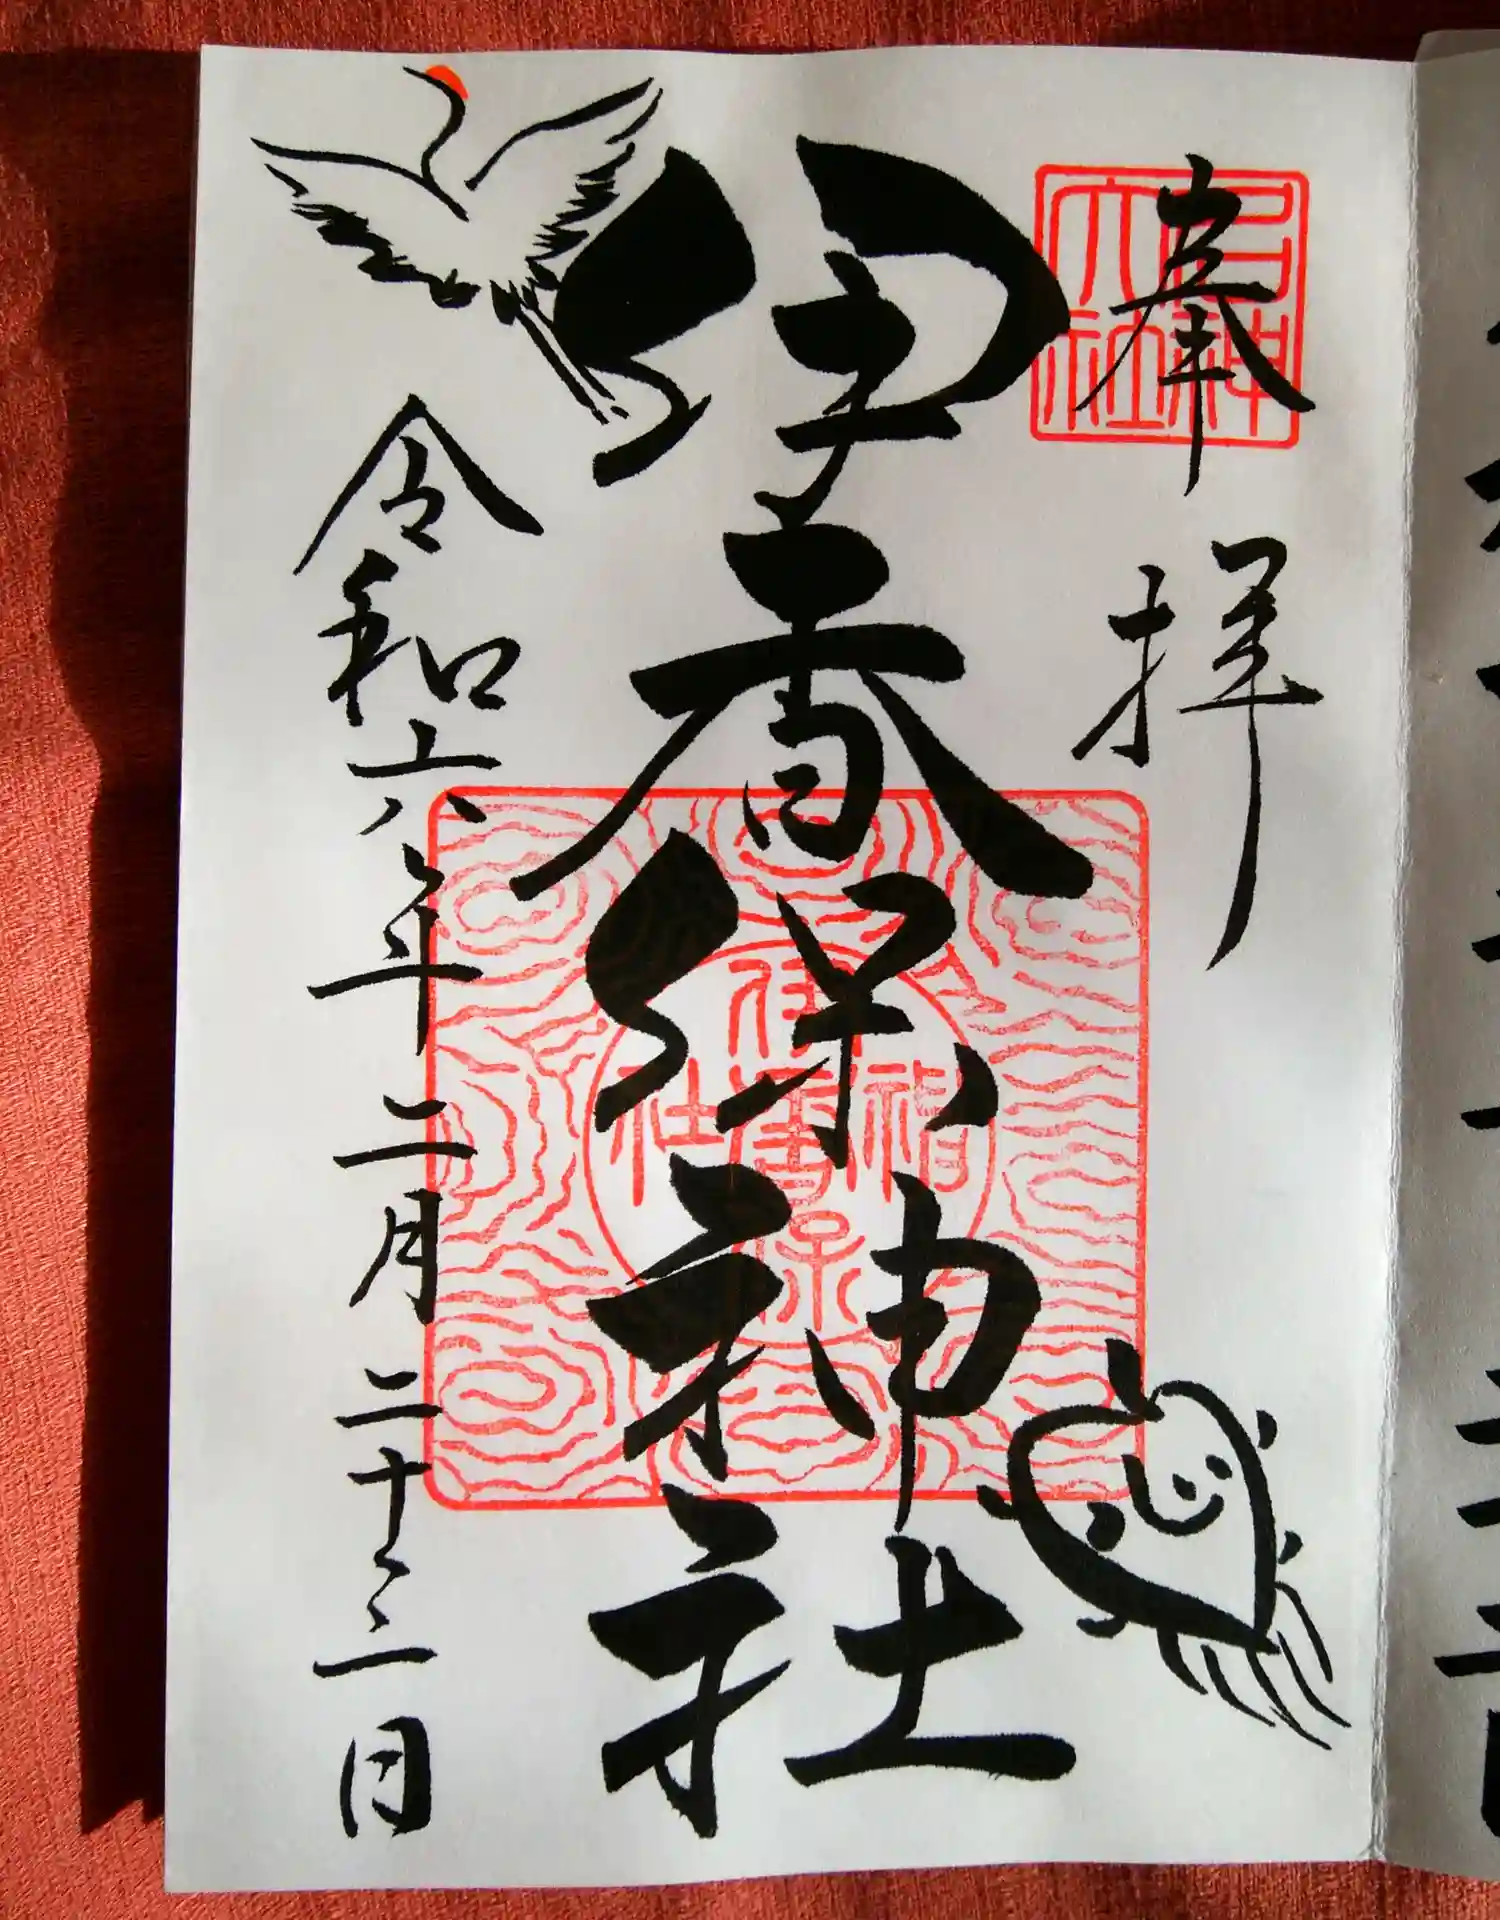 奉拝
名神大社
伊香保神社
伊香保神社
令和六年二月二十三日